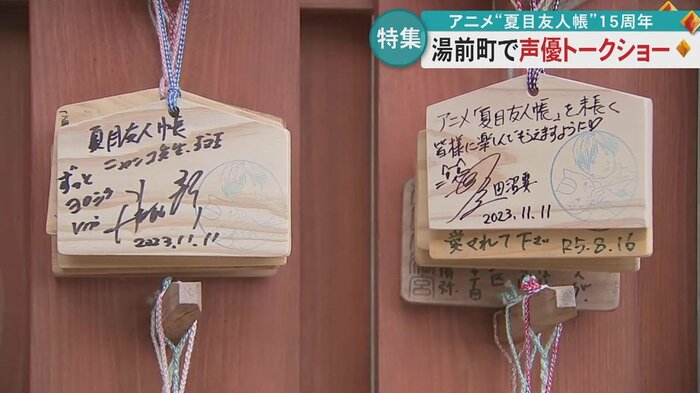 アニメ“夏目友人帳”15周年
特集
湯前町で声優トークショー
夏目友人帳
ニャンコ先生、斑
ずっと
ヨロシク
2023.11.11
アニメ「夏目友人帳」を末長く
皆様に楽しんでもらえますように♡
2023.11.11
愛されて下さい R5.8.16